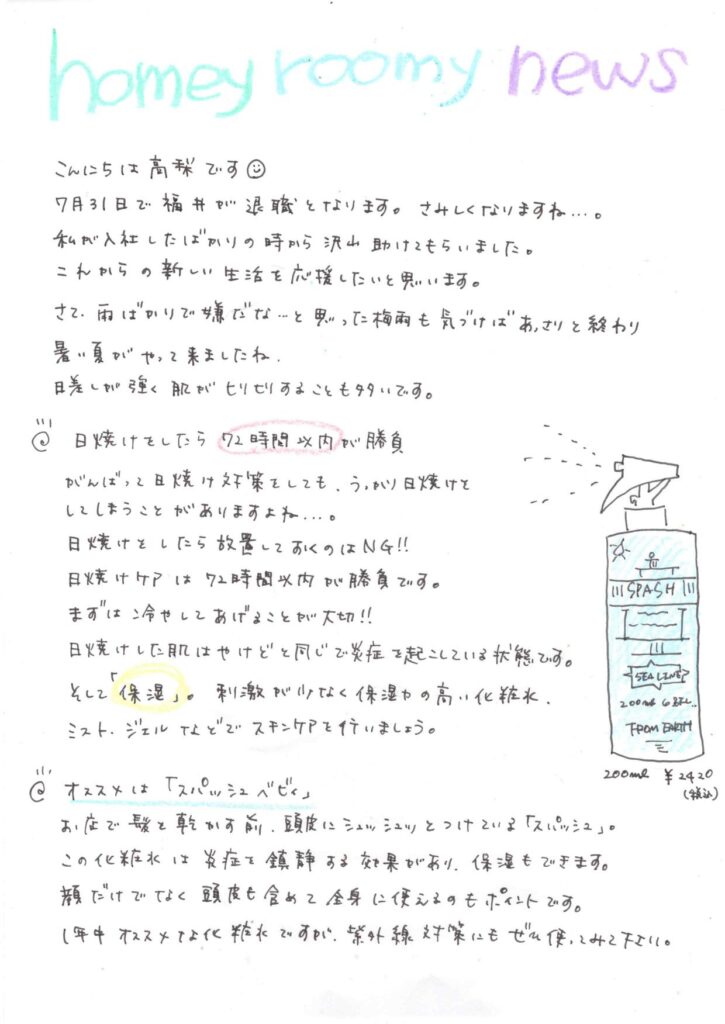 homey roomy news
こんにちは高梨です
7月31日で福井が退職となります。さみしくなりますね…。
私が入社したばかりの時から沢山助けてもらいました。
これからの新しい生活を応援したいと思います。
さて、雨ばかりで嫌だな…と思った梅雨も気づけばあっさりと終わり
暑い夏がやって来ましたね、
日差しが強く肌がヒリヒリすることも多いです。
日焼けをしたら72時間以内が勝負
がんばって日焼け対策をしても、うっかり日焼けを
してしまうことがありますよね…。
日焼けをしたら放置しておくのはNG!!
日焼けケアは72時間以内が勝負です。
まずは冷やしてあげることが大切!!
日焼けした肌はやけどと同じで炎症を起こしている状態です。
そして「保湿」。刺激が少なく保湿力の高い化粧水、
ミスト、ジェルなどでスキンケアを行いましょう。
SPASH
SEA LINE
200ml
FROM EARTH
200ml ¥2420
(税込)
オススメは「スパッシュベビィ」
お店で髪を乾かす前、頭皮にシュッシュッとつけている「スパッシュ」。
この化粧水は炎症を鎮静する効果があり、保湿もできます。
顔だけでなく頭皮も含めて全身に使えるのもポイントです。
1年中オススメな化粧水ですが、紫外線対策にもぜひ使ってみて下さい。